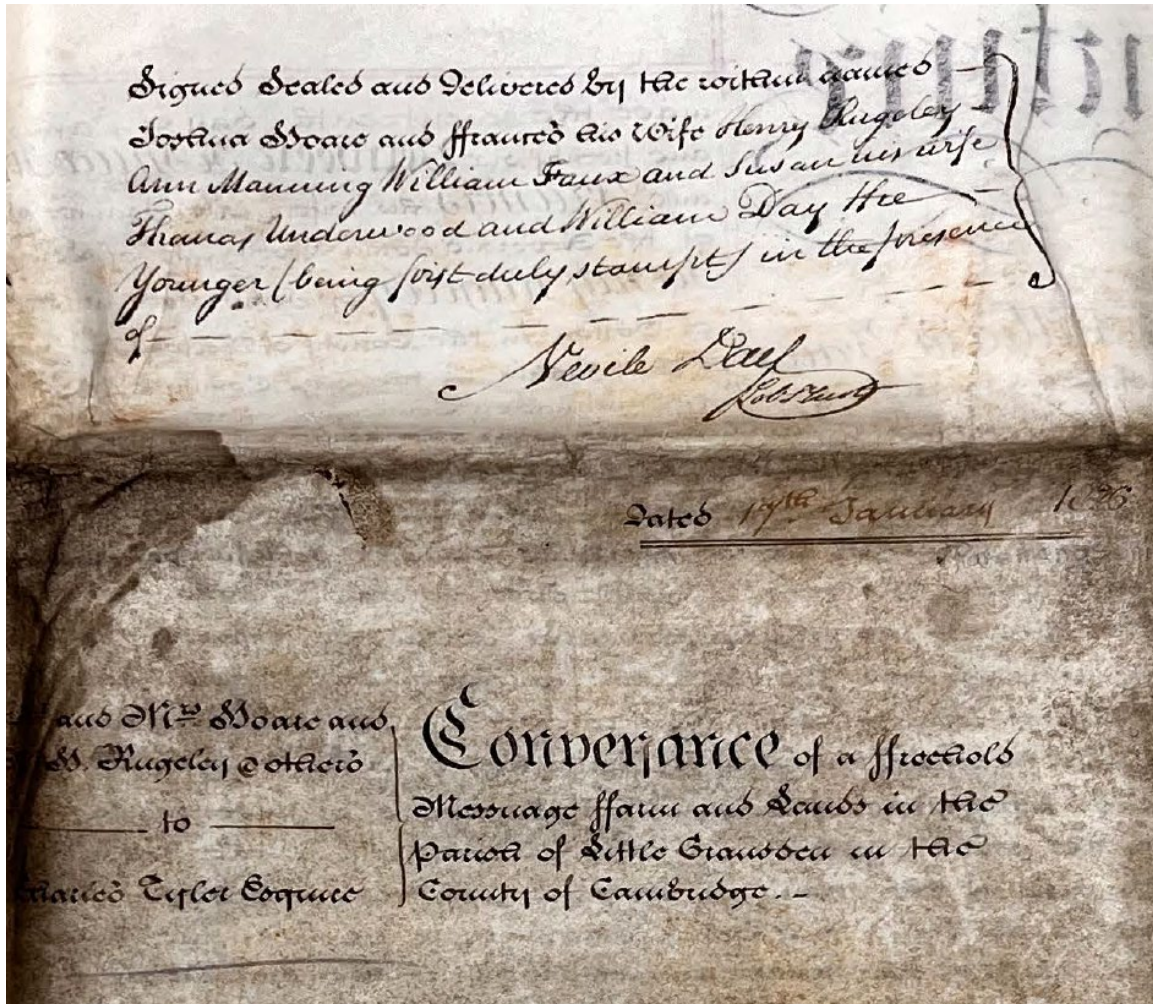 Signed Sealed and Delivered by the within named
Joshua Hoare and ffrances his Wife Henry Rugeley
Ann Manning William Faux and Susan his wife
Thomas Underwood and William Day the
Younger (being first duly stampt) in the presence
of
Nevile Day
Dated 19th January
and Mrs Hoare and
H. Rugeley & others
to
Charles Tyler Esquire
Conveyance of a ffreehold
Messuage ffarm and Lands in the
Parish of Little Gransden in the
County of Cambridge.